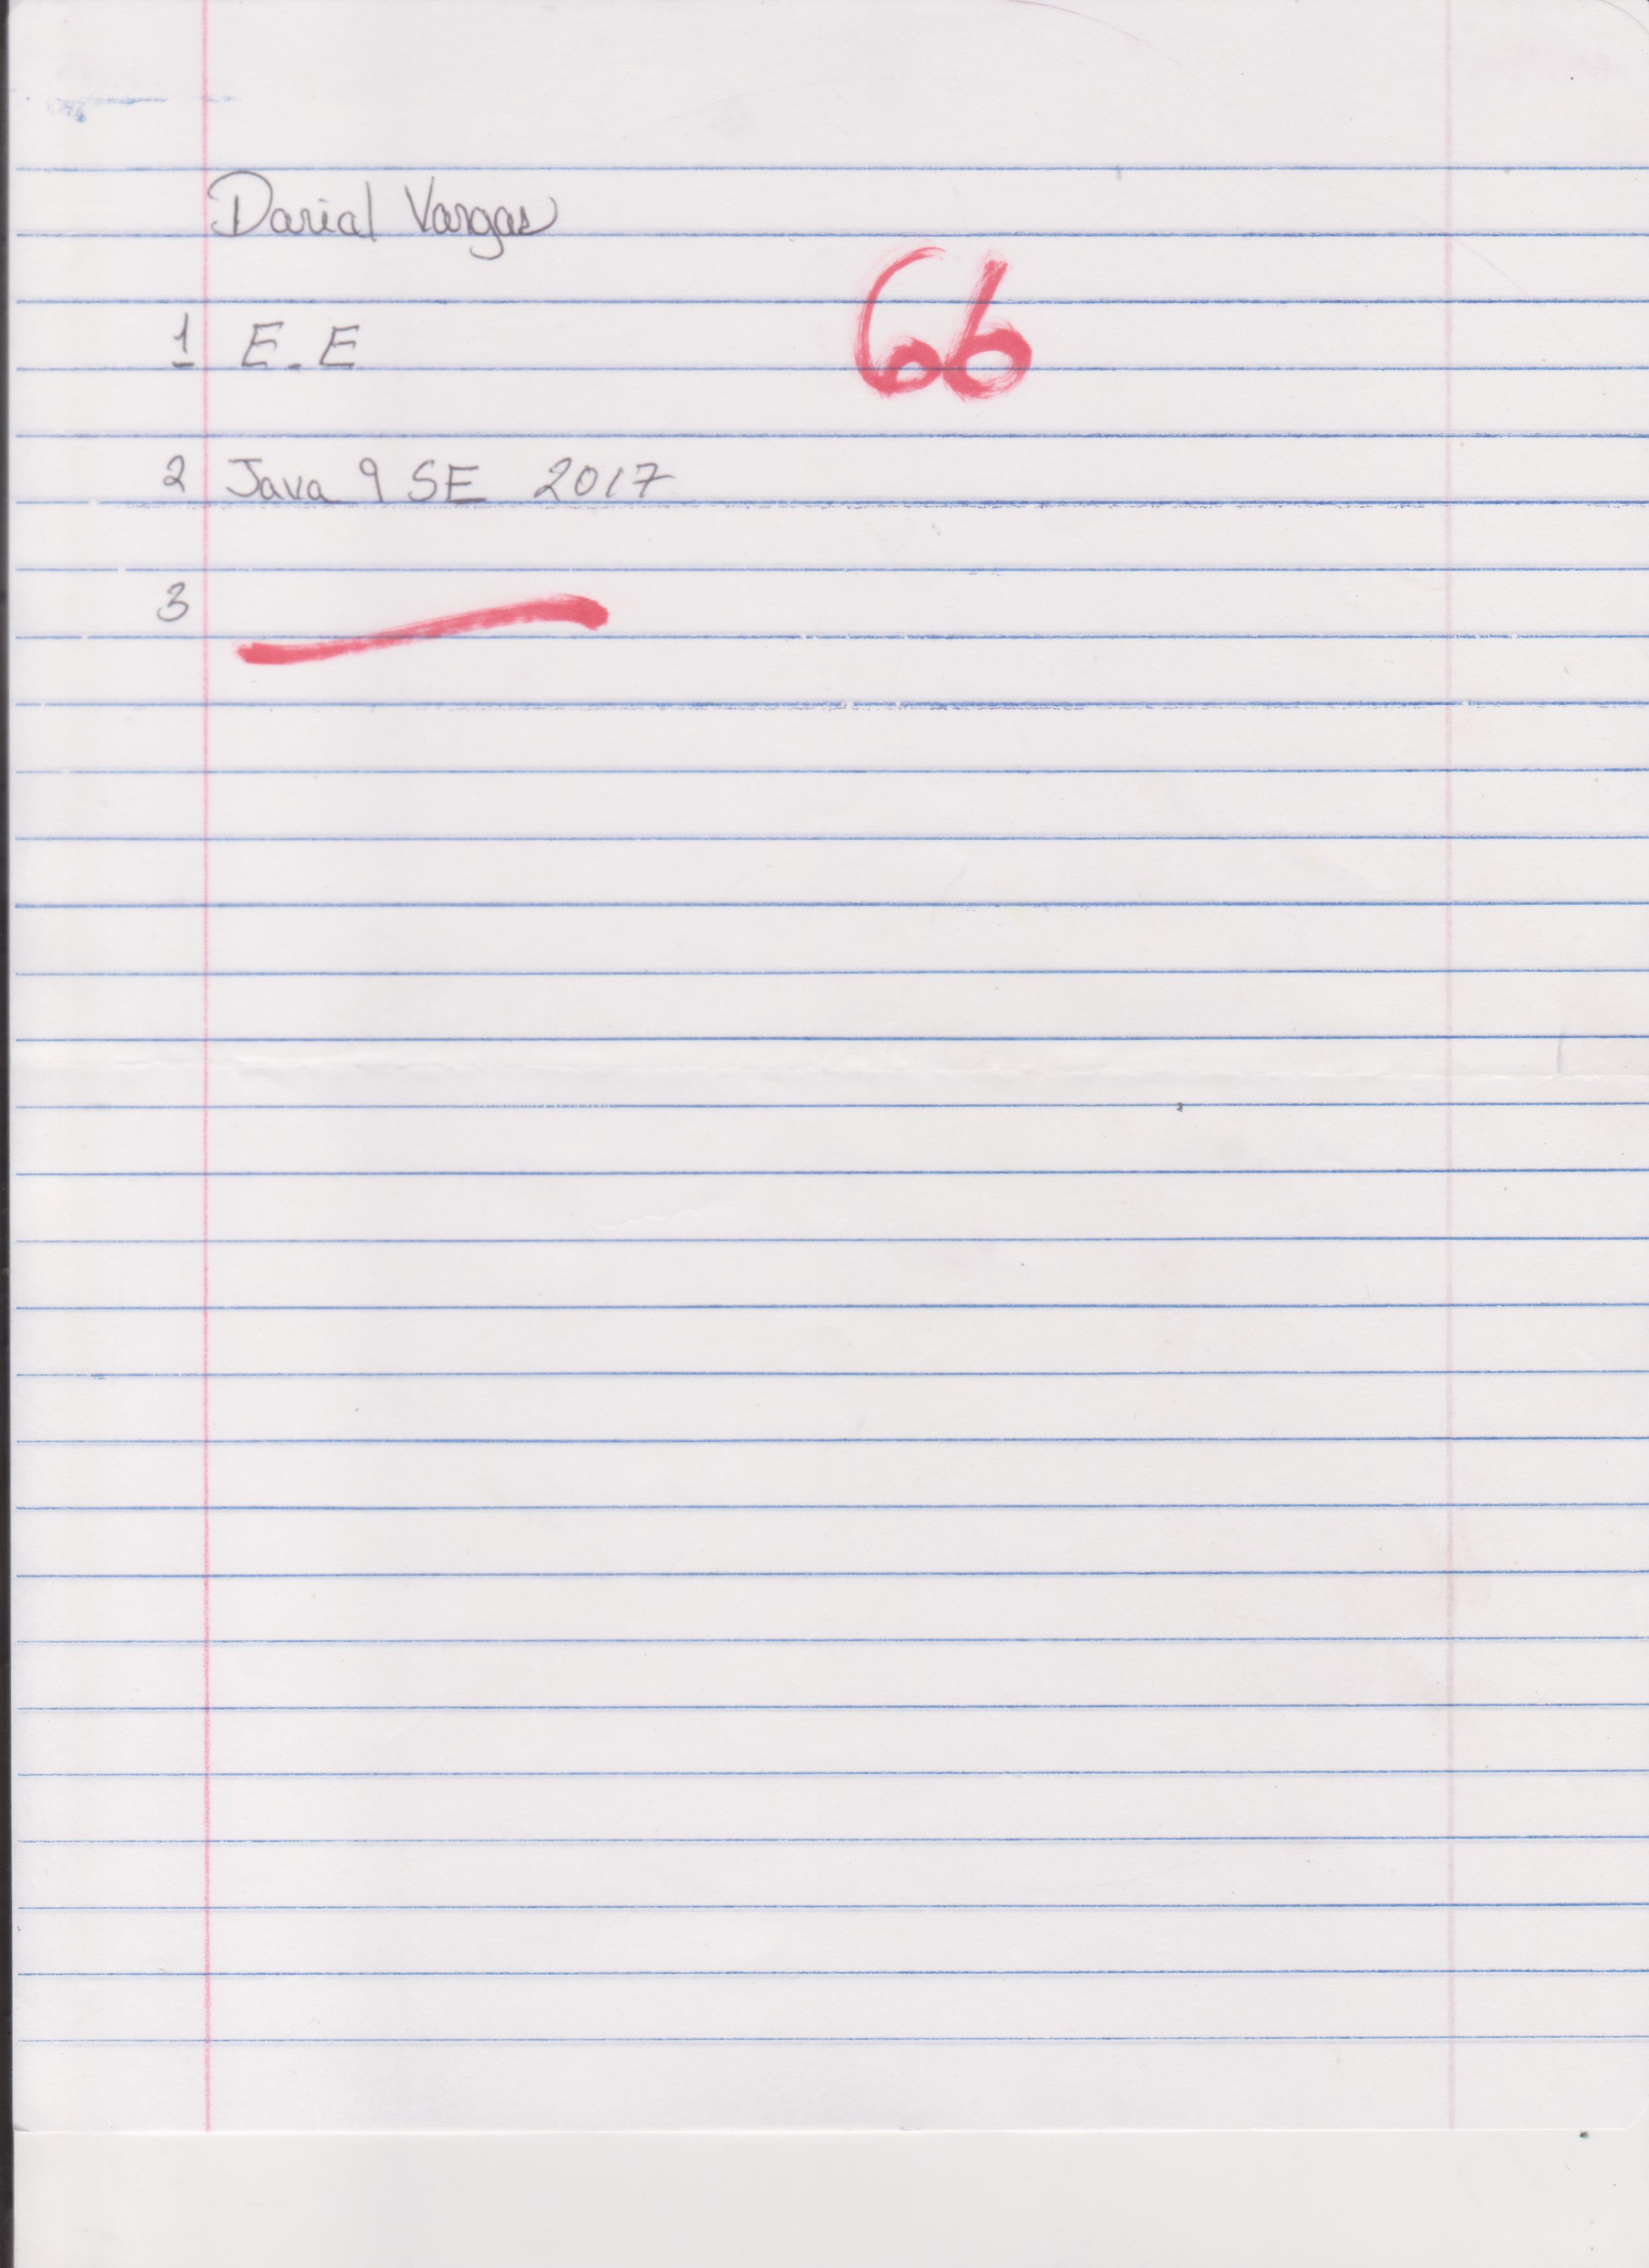 Darial Vargas
66
1 E.E
2 Java 9 SE 2017
3